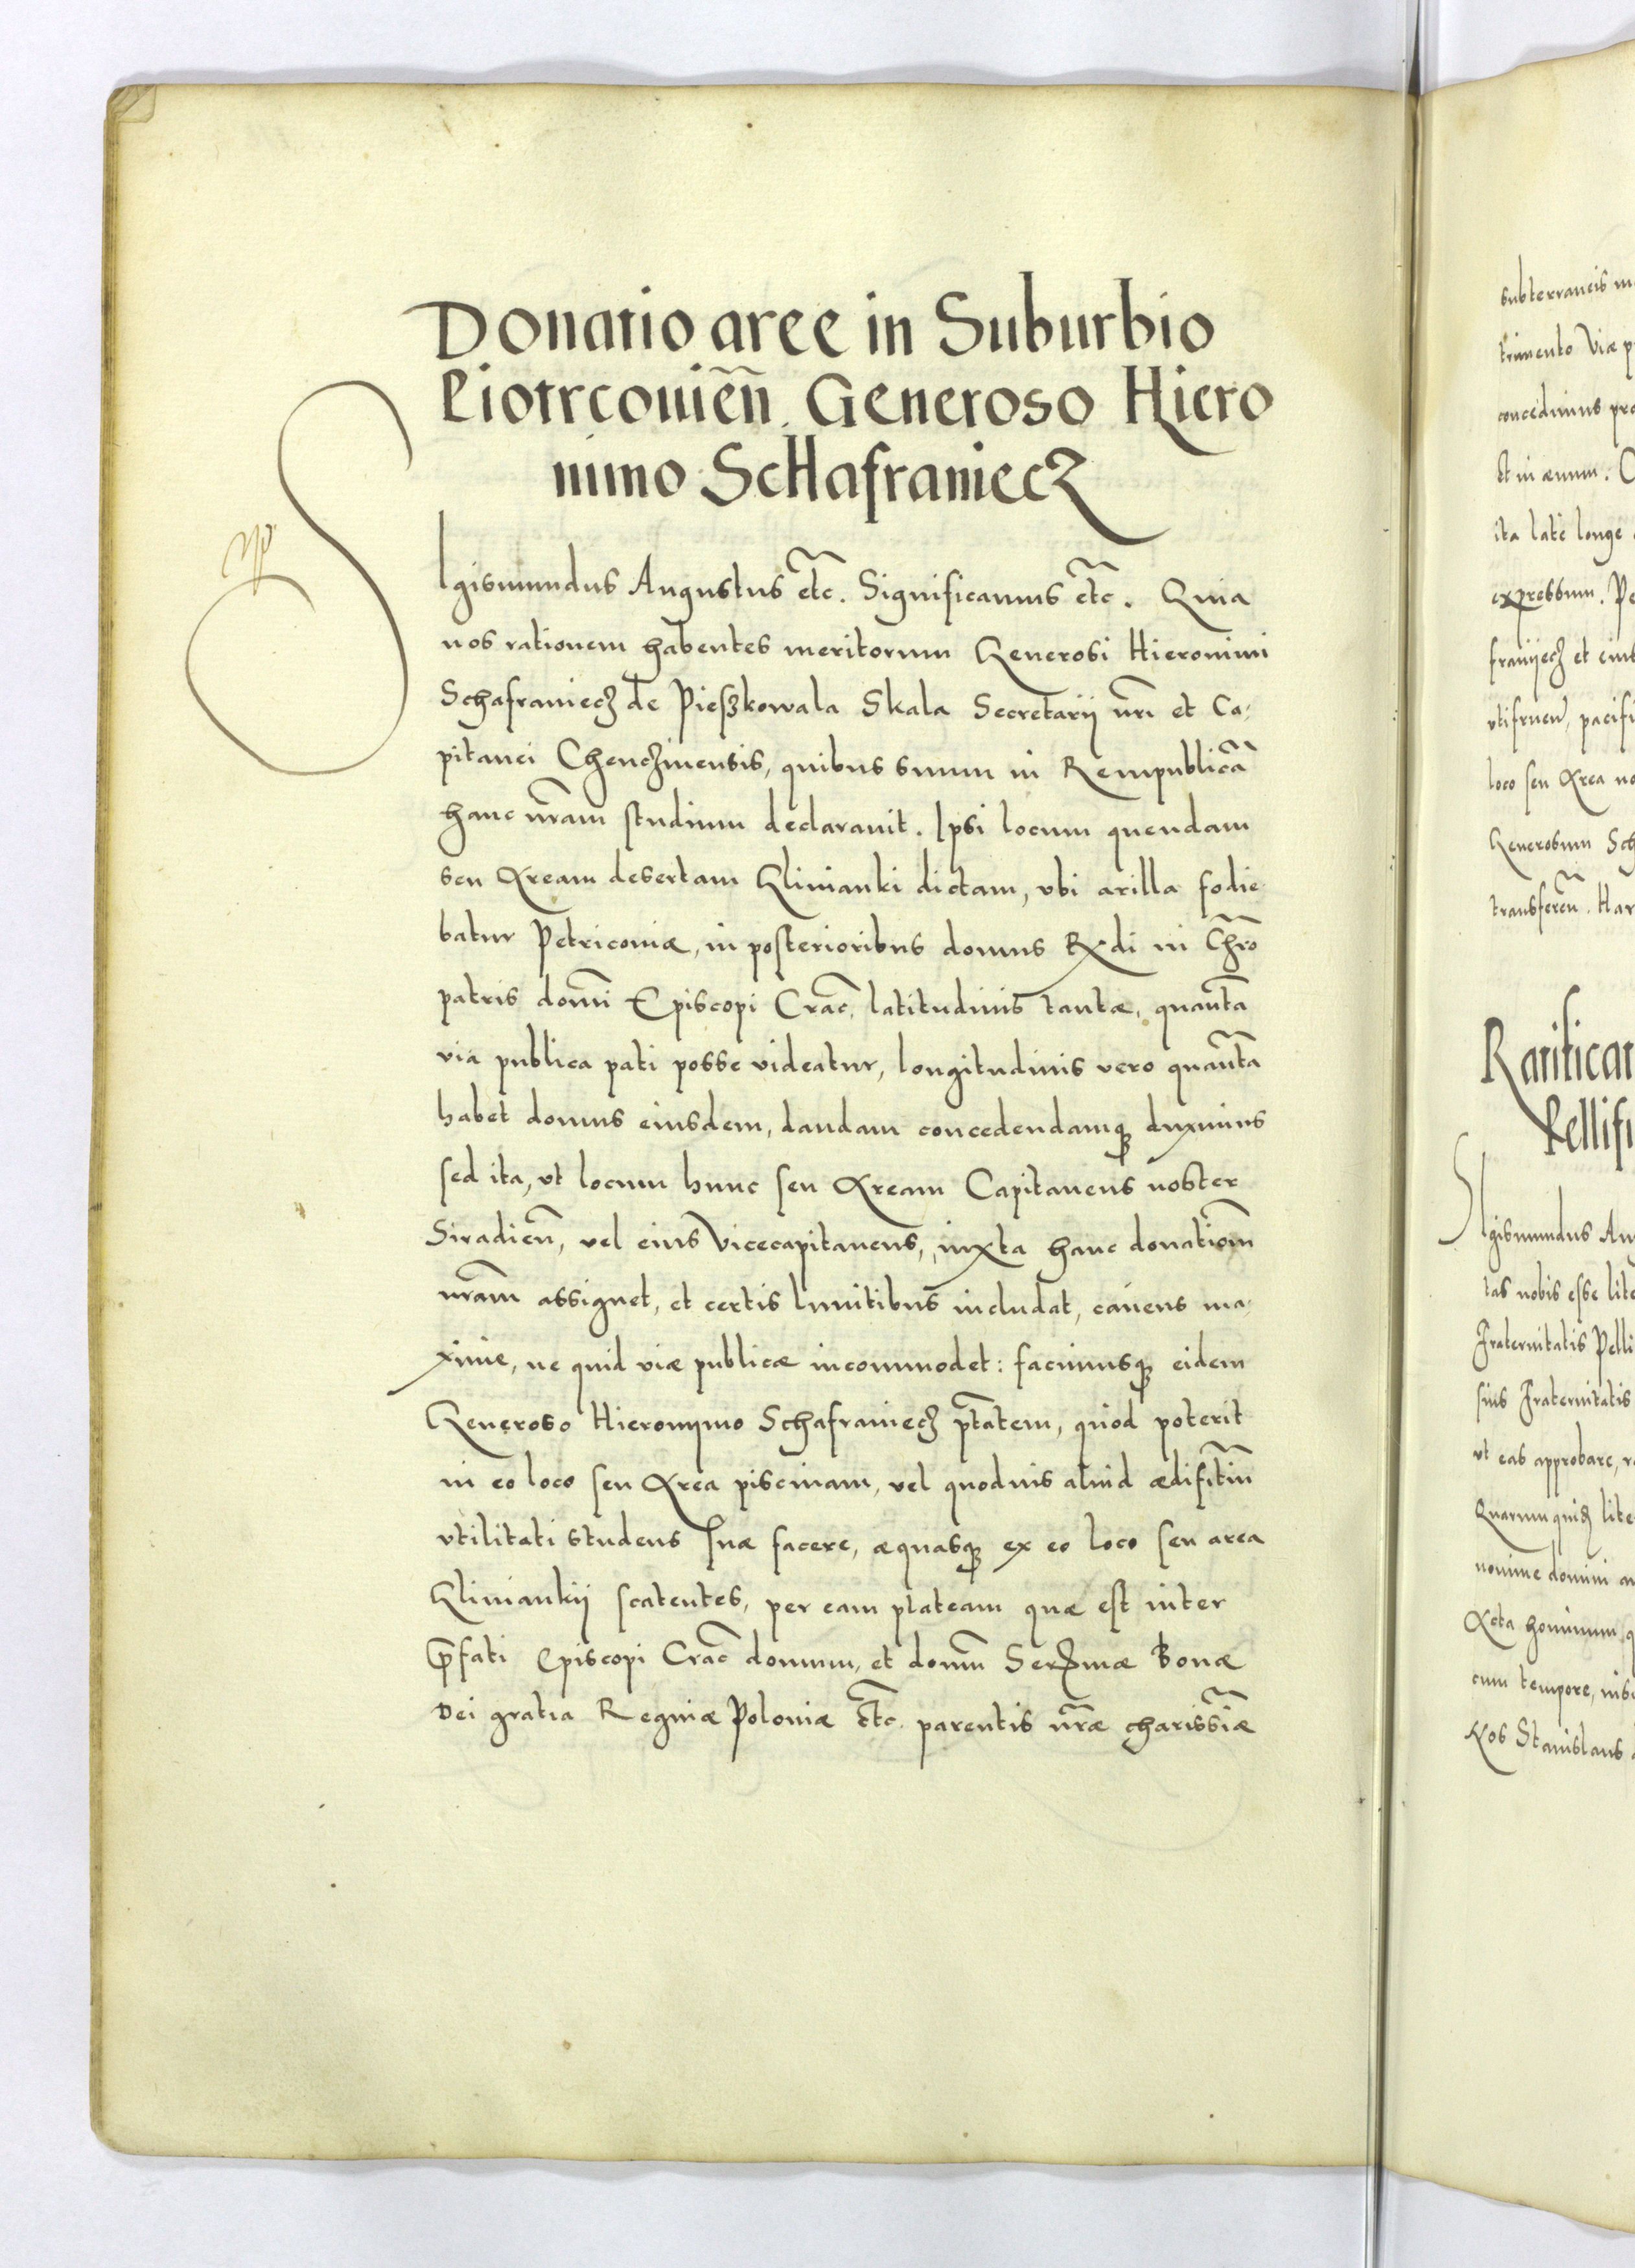 Donatio aree in Suburbio
Piotrcouien̄. Generoso Hiero
nimo Schafraniecz
SIgismundus Augustus etc̃. Significamus etc̃. Quia
nos rationem habentes meritorum Generosi Hieronimi
Schafraniecz de Pieskowala Skala Secretarij nr̃i et Ca,
pitanei Chenczinensis, quibus suum in Rempublicã
hanc nr̃am studium declarauit. Ipsi locum quendam
seu Aream desertam Glinianki dictam, vbi arilla fodie
batur Petricouiæ, in posterioribus domus Rx̃di in Chr̃o
patris domĩ Episcopi Crac̃. latitudinis tantæ, quantã
via publica pati posse videatur, longitudinis vero quantã
habet domus eiusdem, dandam concedendamq̢ duximus
sed ita, vt locum hunc seu Aream Capitaneus noster
Siradien̄, vel eius Vicecapitaneus, iuxta hanc donatiom̃
nr̃am assignet, et certis limitibus includat, cauens ma,
xime, ne quid viæ publicæ incommodet: facimusq̢ eidem
Generoso Hieronymo Schafraniecz pt̃atem, quod poterit
in eo loco seu Area piscinam, vel quoduis aliud ædifitiũ
vtilitati studens suæ facere, aquasq̢ ex eo loco seu area
Gliniankij scatentes, per eam plateam quæ est inter
p̃fati Episcopi Crac̃ domum, et domũ Serx̃mæ Bonæ
Dei gratia Reginæ Poloniæ etc̃. parentis nr̃æ charissĩæ
subterraneis
trimento Viæ
concedimus
et in æuum.
ita late longe
expressum.
franijecz et
vtifruen̄, pacifi
loco seu Area
Generosum Sch
transferen̄. Har
Ratificat
Pellifi
SIgismundus Au
tas nobis esse lite
Fraternitatis Pelli
suis Fraternitatis
vt eas approbare,
Quarum quid̢ lite
nomine domini
Acta hominum,
cum tempore, nisi
Nos Stanislaus